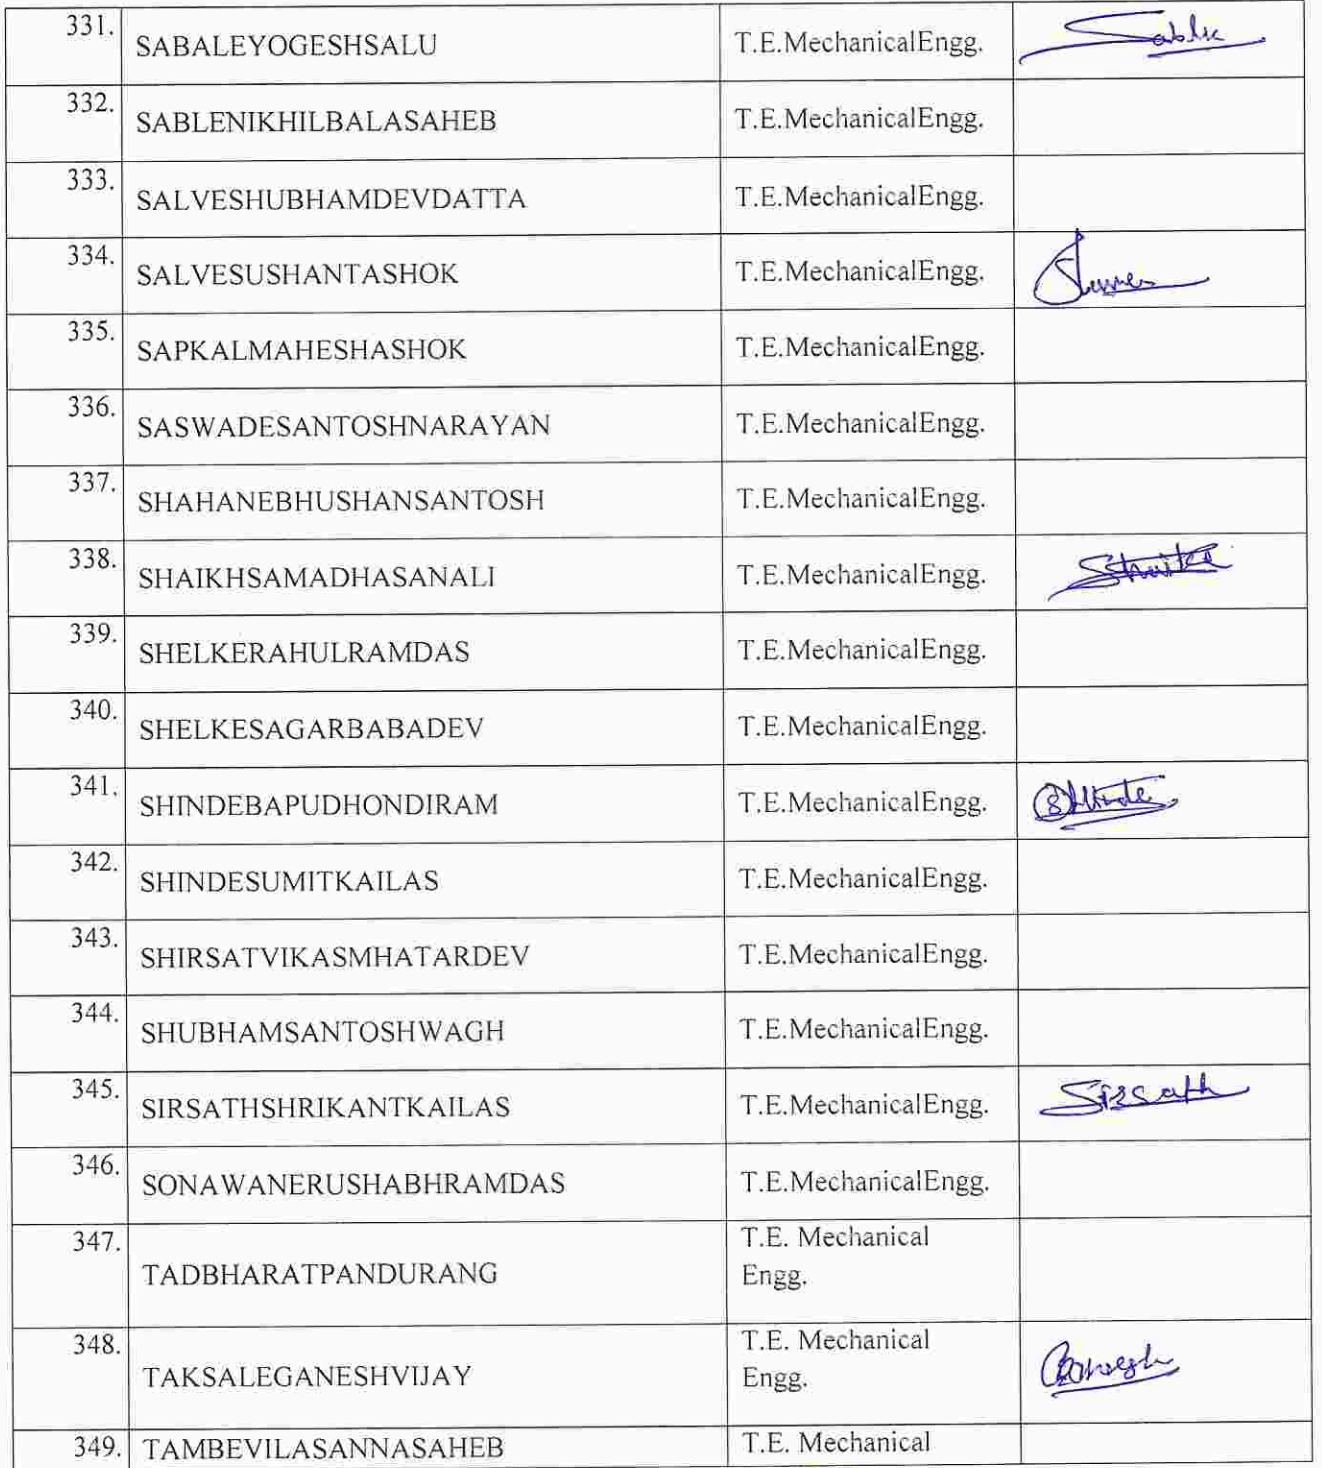 331. SABALEYOGESHSALU T.E.MechanicalEngg. Sable
332. SABLENIKHILBALASAHEB T.E.MechanicalEngg.
333. SALVESHUBHAMDEVDATTA T.E.MechanicalEngg.
334. SALVESUSHANTASHOK T.E.MechanicalEngg.
335. SAPKALMAHESHASHOK T.E.MechanicalEngg.
336. SASWADESANTOSHNARAYAN T.E.MechanicalEngg.
337. SHAHANEBHUSHANSANTOSH T.E.MechanicalEngg.
338. SHAIKHSAMADHASANALI T.E.MechanicalEngg.
339. SHELKERAHULRAMDAS T.E.MechanicalEngg.
340. SHELKESAGARBABADEV T.E.MechanicalEngg.
341. SHINDEBAPUDHONDIRAM T.E.MechanicalEngg.
342. SHINDESUMITKAILAS T.E.MechanicalEngg.
343. SHIRSATVIKASMHATARDEV T.E.MechanicalEngg.
344. SHUBHAMSANTOSHWAGH T.E.MechanicalEngg.
345. SIRSATHSHRIKANTKAILAS T.E.MechanicalEngg. Sirsath
346. SONAWANERUSHABHRAMDAS T.E.MechanicalEngg.
347. TADBHARATPANDURANG T.E. Mechanical
Engg.
348. TAKSALEGANESHVIJAY T.E. Mechanical
Engg.
349. TAMBEVILASANNASAHEB T.E. Mechanical